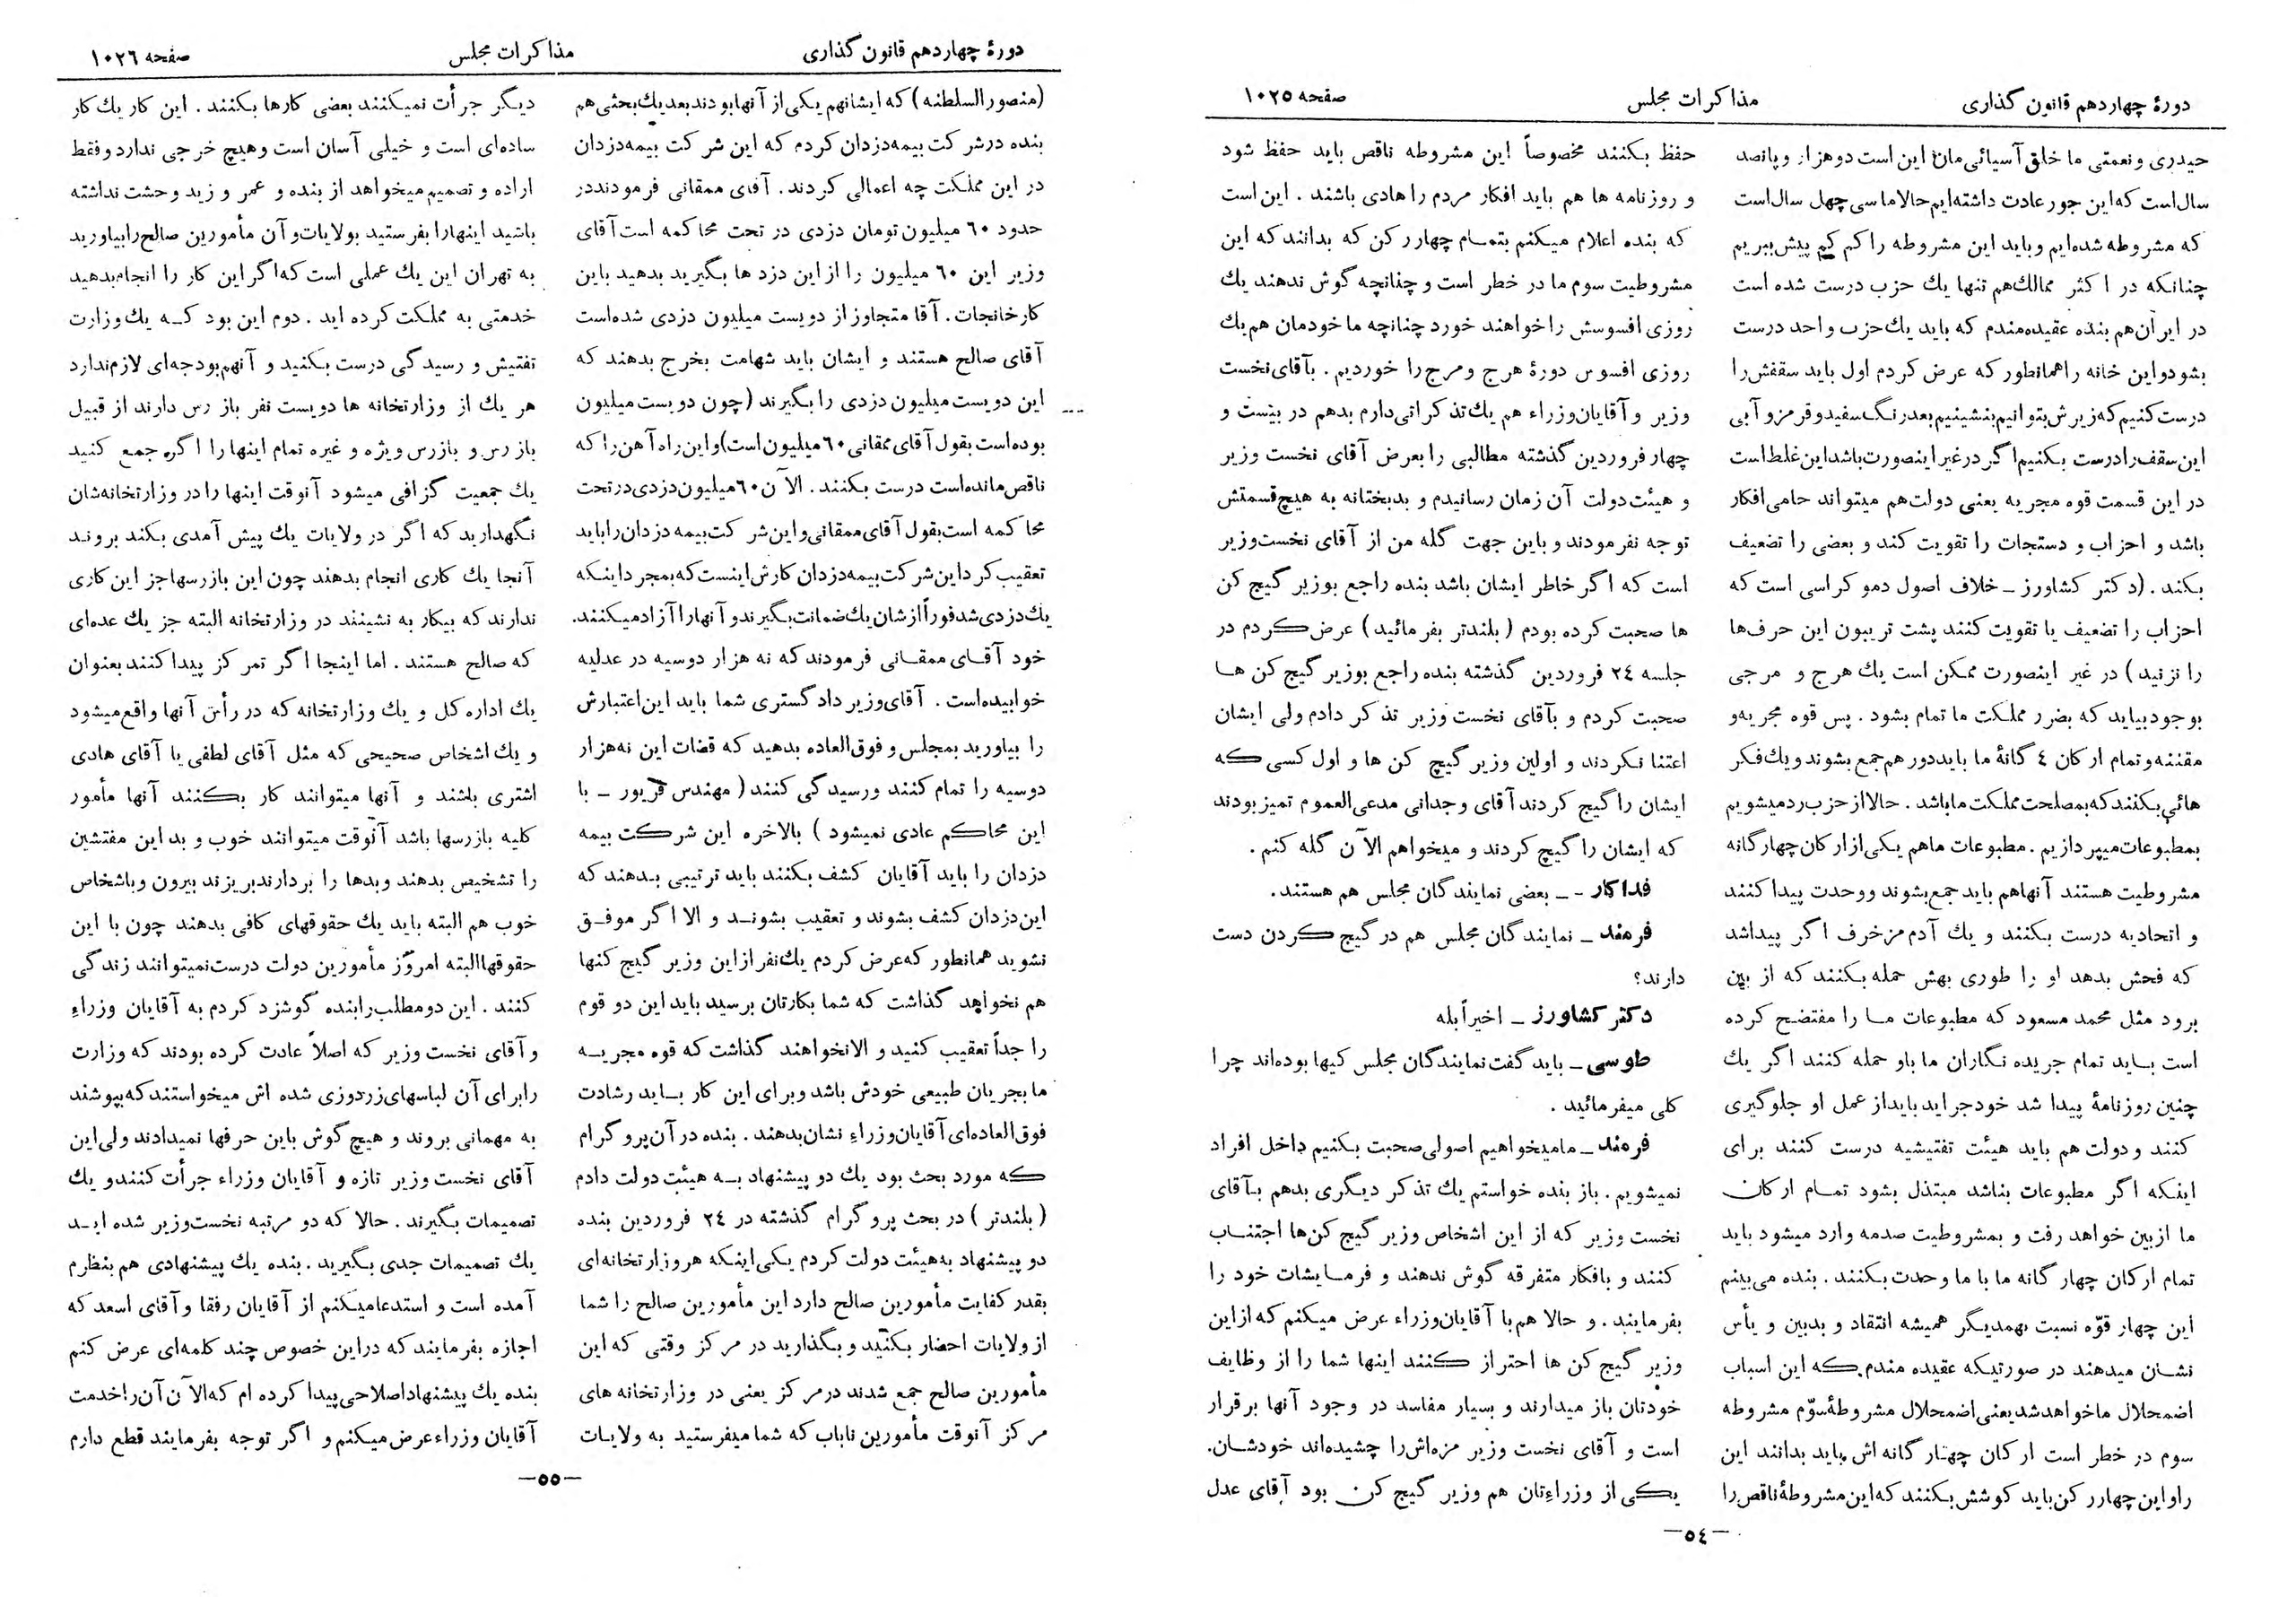 دورهٔ چهاردهم قانون گذاری
مذاکرات مجلس
صفحه ۱۰۲۵
حیدری و نعمتی ما خلق آسیائی‌مان این است دو هزار و پانصد
سال است که این جور عادت داشته‌ایم حالا ما سی چهل سال است
که مشروطه شده‌ایم و باید این مشروطه را کم کم پیش ببریم
چنانکه در اکثر ممالک هم تنها یک حزب درست شده است
در ایران هم بنده عقیده‌مندم که باید یک حزب واحد درست
بشود و این خانه را همانطور که عرض کردم اول باید سقفش را
درست کنیم که زیرش بتوانیم بنشینیم بعد رنگ سفید و قرمز و آبی
این سقف را درست بکنیم اگر در غیر اینصورت باشد این غلط است
در این قسمت قوه مجریه یعنی دولت هم میتواند حامی افکار
باشد و احزاب و دستجات را تقویت کند و بعضی را تضعیف
بکند . (دکتر کشاورز ــ خلاف اصول دموکراسی است که
احزاب را تضعیف یا تقویت کنند پشت تریبون این حرف‌ها
را نزنید) در غیر اینصورت ممکن است یک هرج و مرجی
بوجود بیاید که بضرر مملکت ما تمام بشود . پس قوه مجریه و
مقننه و تمام ارکان ٤ گانهٔ ما باید دور هم جمع بشوند و یک فکر
هائی بکنند که بمصلحت مملکت ما باشد . حالا از حزب رد میشویم
بمطبوعات میپردازیم . مطبوعات ما هم یکی از ارکان چهارگانه
مشروطیت هستند آنها هم باید جمع بشوند و وحدت پیدا کنند
و اتحادیه درست بکنند و یک آدم مزخرف اگر پیدا شد
که فحش بدهد او را طوری بهش حمله بکنند که از بین
برود مثل محمد مسعود که مطبوعات ما را مفتضح کرده
است باید تمام جریده نگاران ما باو حمله کنند اگر یک
چنین روزنامهٔ پیدا شد خود جراید باید از عمل او جلوگیری
کنند و دولت هم باید هیئت تفتیشیه درست کنند برای
اینکه اگر مطبوعات بناشد مبتذل بشود تمام ارکان
ما از بین خواهد رفت و بمشروطیت صدمه وارد میشود باید
تمام ارکان چهار گانه ما با ما وحدت بکنند . بنده می‌بینم
این چهار قوّه نسبت بهمدیگر همیشه انتقاد و بدبین و یأس
نشان میدهند در صورتیکه عقیده مندم که این اسباب
اضمحلال ما خواهد شد یعنی اضمحلال مشروطهٔ سوّم مشروطه
سوم در خطر است ارکان چهار گانه اش باید بدانند این
را و این چهار رکن باید کوشش بکنند که این مشروطهٔ ناقص را
حفظ بکنند مخصوصاً این مشروطه ناقص باید حفظ شود
و روزنامه ها هم باید افکار مردم را هادی باشند . این است
که بنده اعلام میکنم بتمام چهار رکن که بدانند که این
مشروطیت سوم ما در خطر است و چنانچه گوش ندهند یک
روزی افسوسش را خواهند خورد چنانچه ما خودمان هم یک
روزی افسوس دورهٔ هرج و مرج را خوردیم . بآقای نخست
وزیر و آقایان وزراء هم یک تذکراتی دارم بدهم در بیست و
چهار فروردین گذشته مطالبی را بعرض آقای نخست وزیر
و هیئت دولت آن زمان رسانیدم و بدبختانه به هیچ قسمتش
توجه نفرمودند و باین جهت گله من از آقای نخست وزیر
است که اگر خاطر ایشان باشد بنده راجع بوزیر گیج کن
ها صحبت کرده بودم ( بلندتر بفرمائید ) عرض کردم در
جلسه ٢٤ فروردین گذشته بنده راجع بوزیر گیج کن ها
صحبت کردم و بآقای نخست وزیر تذکر دادم ولی ایشان
اعتنا نکردند و اولین وزیر گیج کن ها و اول کسی که
ایشان را گیج کردند آقای وجدانی مدعی‌العموم تمیز بودند
که ایشان را گیج کردند و میخواهم الآن گله کنم .
فداکار - ــ بعضی نمایندگان مجلس هم هستند .
فرمند ــ نمایندگان مجلس هم در گیج کردن دست
دارند؟
دکتر کشاورز ــ اخیراً بله
طوسی ــ باید گفت نمایندگان مجلس کیها بوده‌اند چرا
کلی میفرمائید .
فرمند ــ ما میخواهیم اصولی صحبت بکنیم داخل افراد
نمیشویم . باز بنده خواستم یک تذکر دیگری بدهم بآقای
نخست وزیر که از این اشخاص وزیر گیج کن‌ها اجتناب
کنند و بافکار متفرقه گوش ندهند و فرمایشات خود را
بفرمایند . و حالا هم با آقایان وزراء عرض میکنم که از این
وزیر گیج کن ها احتراز کنند اینها شما را از وظایف
خودتان باز میدارند و بسیار مفاسد در وجود آنها برقرار
است و آقای نخست وزیر مزه‌اش را چشیده‌اند خودشان.
یکی از وزراءتان هم وزیر گیج کن بود آقای عدل
—٥٤—
دورهٔ چهاردهم قانون گذاری
مذاکرات مجلس
صفحه ۱۰۲٦
(منصورالسلطنه) که ایشانهم یکی از آنها بودند بعد یک بحثی هم
بنده در شرکت بیمه دزدان کردم که این شرکت بیمه دزدان
در این مملکت چه اعمالی کردند . آقای ممقانی فرمودند در
حدود ٦٠ میلیون تومان دزدی در تحت محاکمه است آقای
وزیر این ٦٠ میلیون را از این دزد ها بگیرید بدهید باین
کارخانجات . آقا متجاوز از دویست میلیون دزدی شده است
آقای صالح هستند و ایشان باید شهامت بخرج بدهند که
این دویست میلیون دزدی را بگیرند (چون دویست میلیون
بوده است بقول آقای ممقانی ٦٠ میلیون است) و این راه آهن را که
ناقص مانده است درست بکنند . الآن ٦٠ میلیون دزدی در تحت
محاکمه است بقول آقای ممقانی و این شرکت بیمه دزدان را باید
تعقیب کرد این شرکت بیمه دزدان کارش اینست که بمجرد اینکه
یک دزدی شد فوراً ازشان یک ضمانت بگیرند و آنها را آزاد میکنند.
خود آقای ممقانی فرمودند که نه هزار دوسیه در عدلیه
خوابیده است . آقای وزیر دادگستری شما باید این اعتبارش
را بیاورید بمجلس و فوق‌العاده بدهید که قضات این نه هزار
دوسیه را تمام کنند و رسیدگی کنند ( مهندس فریور ــ با
این محاکم عادی نمیشود ) بالاخره این شرکت بیمه
دزدان را باید آقایان کشف بکنند باید ترتیبی بدهند که
این دزدان کشف بشوند و تعقیب بشوند و الا اگر موفق
نشوید همانطور که عرض کردم یک نفر از این وزیر گیج کنها
هم نخواهد گذاشت که شما بکارتان برسید باید این دو قوم
را جداً تعقیب کنید و الا نخواهند گذاشت که قوه مجریه
ما بجریان طبیعی خودش باشد و برای این کار باید رشادت
فوق‌العاده‌ای آقایان وزراء نشان بدهند . بنده در آن پروگرام
که مورد بحث بود یک دو پیشنهاد به هیئت دولت دادم
( بلندتر ) در بحث پروگرام گذشته در ٢٤ فروردین بنده
دو پیشنهاد به هیئت دولت کردم یکی اینکه هر وزارتخانه‌ای
بقدر کفایت مأمورین صالح دارد این مأمورین صالح را شما
از ولایات احضار بکنید و بگذارید در مرکز وقتی که این
مأمورین صالح جمع شدند در مرکز یعنی در وزارتخانه های
مرکز آنوقت مأمورین ناباب که شما میفرستید به ولایات
دیگر جرأت نمیکنند بعضی کارها بکنند . این کار یک کار
ساده‌ای است و خیلی آسان است و هیچ خرجی ندارد و فقط
اراده و تصمیم میخواهد از بنده و عمر و زید وحشت نداشته
باشید اینها را بفرستید بولایات و آن مأمورین صالح را بیاورید
به تهران این یک عملی است که اگر این کار را انجام بدهید
خدمتی به مملکت کرده اید . دوم این بود که یک وزارت
تفتیش و رسیدگی درست بکنید و آنهم بودجه‌ای لازم ندارد
هر یک از وزارتخانه ها دویست نفر بازرس دارند از قبیل
بازرس و بازرس ویژه و غیره تمام اینها را اگر جمع کنید
یک جمعیت گزافی میشود آنوقت اینها را در وزارتخانه‌شان
نگهدارید که اگر در ولایات یک پیش آمدی بکند بروند
آنجا یک کاری انجام بدهند چون این بازرسها جز این کاری
ندارند که بیکار به نشینند در وزارتخانه البته جز یک عده‌ای
که صالح هستند . اما اینجا اگر تمرکز پیدا کنند بعنوان
یک اداره کل و یک وزارتخانه که در رأس آنها واقع میشود
و یک اشخاص صحیحی که مثل آقای لطفی یا آقای هادی
اشتری باشند و آنها میتوانند کار بکنند آنها مأمور
کلیه بازرسها باشد آنوقت میتوانند خوب و بد این مفتشین
را تشخیص بدهند و بدها را بردارند بریزند بیرون و باشخاص
خوب هم البته باید یک حقوقهای کافی بدهند چون با این
حقوقها البته امروز مأمورین دولت درست نمیتوانند زندگی
کنند . این دو مطلب را بنده گوشزد کردم به آقایان وزراء
و آقای نخست وزیر که اصلاً عادت کرده بودند که وزارت
را برای آن لباسهای زردوزی شده اش میخواستند که بپوشند
به مهمانی بروند و هیچ گوش باین حرفها نمیدادند ولی این
آقای نخست وزیر تازه و آقایان وزراء جرأت کنند و یک
تصمیمات بگیرند . حالا که دو مرتبه نخست وزیر شده اید
یک تصمیمات جدی بگیرید . بنده یک پیشنهادی هم بنظرم
آمده است و استدعا میکنم از آقایان رفقا و آقای اسعد که
اجازه بفرمایند که در این خصوص چند کلمه‌ای عرض کنم
بنده یک پیشنهاد اصلاحی پیدا کرده ام که الآن آن را خدمت
آقایان وزراء عرض میکنم و اگر توجه بفرمایند قطع دارم
—٥٥—